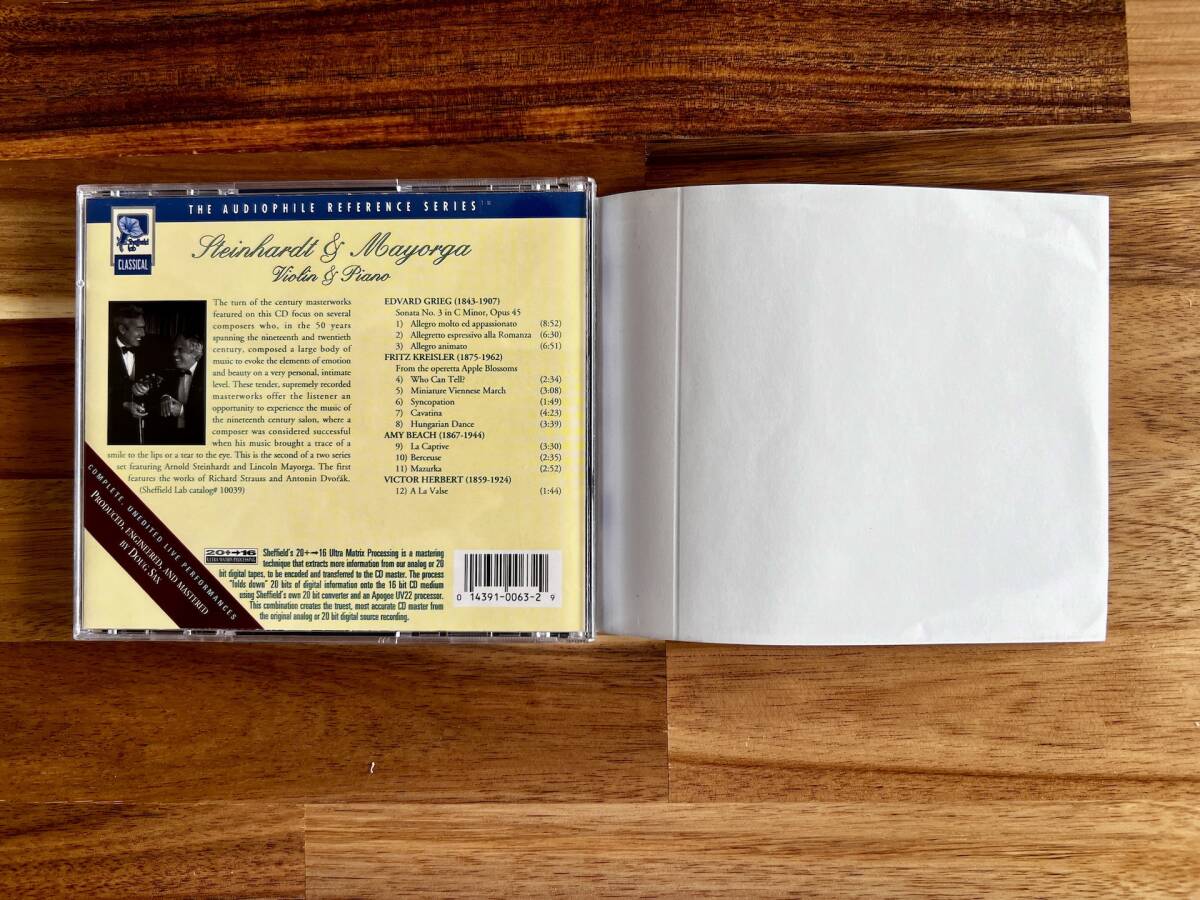 THE AUDIOPHILE REFERENCE SERIES
Sheffield
Lab
CLASSICAL
Steinhardt & Mayorga
Violin & Piano
The turn of the century masterworks
featured on this CD focus on several
composers who, in the 50 years
spanning the nineteenth and twentieth
century, composed a large body of
music to evoke the elements of emotion
and beauty on a very personal, intimate
level. These tender, supremely recorded
masterworks offer the listener an
opportunity to experience the music of
the nineteenth century salon, where a
composer was considered successful
when his music brought a trace of a
smile to the lips or a tear to the eye. This is the second of a two series
set featuring Arnold Steinhardt and Lincoln Mayorga. The first
features the works of Richard Strauss and Antonin Dvořák.
(Sheffield Lab catalog# 10039)
EDVARD GRIEG (1843-1907)
Sonata No. 3 in C Minor, Opus 45
1) Allegro molto ed appassionato (8:52)
2) Allegretto espressivo alla Romanza (6:30)
3) Allegro animato (6:51)
FRITZ KREISLER (1875-1962)
From the operetta Apple Blossoms
4) Who Can Tell? (2:34)
5) Miniature Viennese March (3:08)
6) Syncopation (1:49)
7) Cavatina (4:23)
8) Hungarian Dance (3:39)
AMY BEACH (1867-1944)
9) La Captive (3:30)
10) Berceuse (2:35)
11) Mazurka (2:52)
VICTOR HERBERT (1859-1924)
12) A La Valse (1:44)
COMPLETE, UNEDITED LIVE PERFORMANCES
PRODUCED, ENGINEERED, AND MASTERED
BY DOUG SAX
20+→16
ULTRA MATRIX PROCESSING
Sheffield's 20+→16 Ultra Matrix Processing is a mastering
technique that extracts more information from our analog or 20
bit digital tapes, to be encoded and transferred to the CD master. The process
"folds down" 20 bits of digital information onto the 16 bit CD medium
using Sheffield's own 20 bit converter and an Apogee UV22 processor.
This combination creates the truest, most accurate CD master from
the original analog or 20 bit digital source recording.
0 14391-0063-2 9